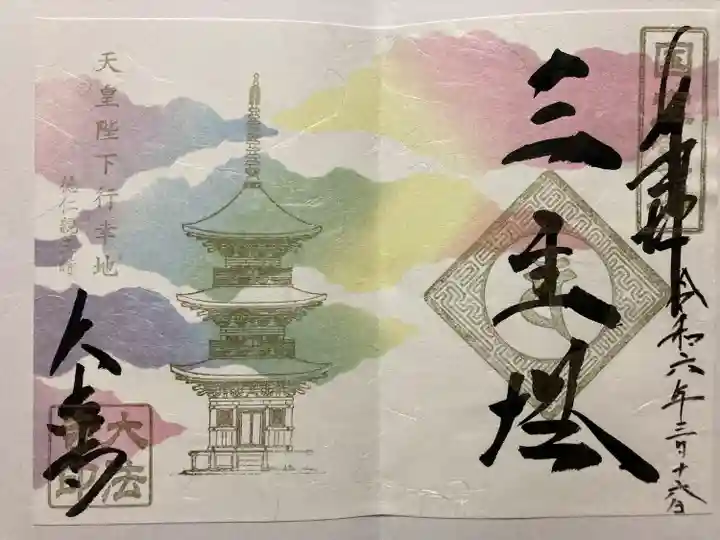 奉拝 令和六年三月十六日
三重塔
天皇陛下行幸地
徳仁親王時
大法寺
大法
寺印